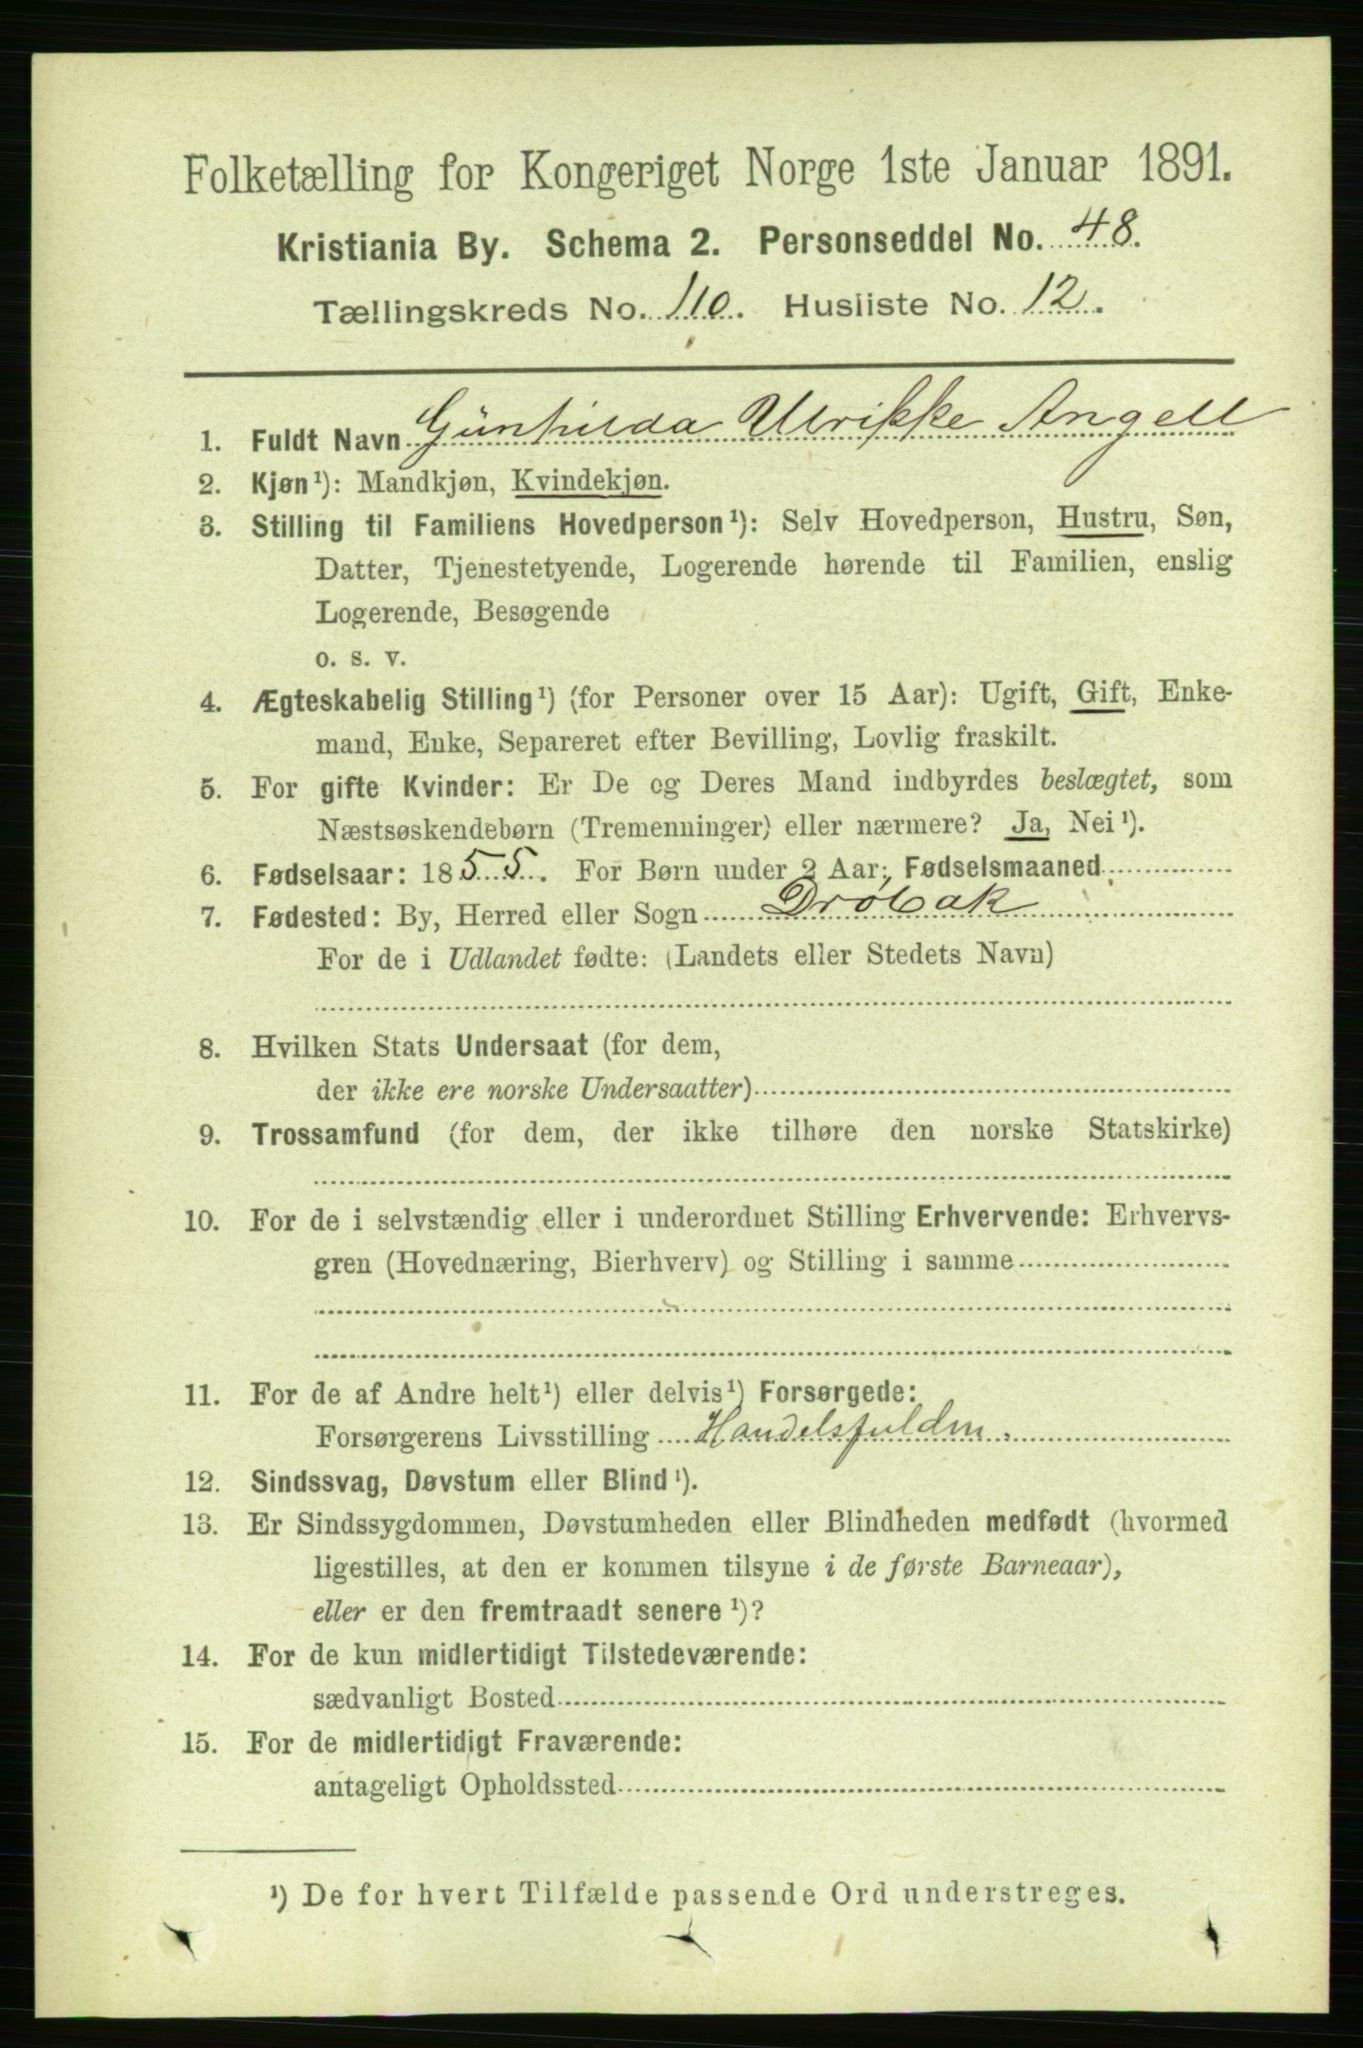 Folketælling for Kongeriget Norge 1ste Januar 1891.
Kristiania By. Schema 2. Personseddel No. 48.
Tællingskreds No. 110. Husliste No. 12.
1. Fuldt Navn Günhilda Ulrikke Angell
2. Kjøn¹): Mandkjøn, Kvindekjøn.
3. Stilling til Familiens Hovedperson¹): Selv Hovedperson, Hustru, Søn,
Datter, Tjenestetyende, Logerende hørende til Familien, enslig
Logerende, Besøgende
o. s. v.
4. Ægteskabelig Stilling¹) (for Personer over 15 Aar): Ugift, Gift, Enke-
mand, Enke, Separeret efter Bevilling, Lovlig fraskilt.
5. For gifte Kvinder: Er De og Deres Mand indbyrdes beslægtet, som
Næstsøskendebørn (Tremenninger) eller nærmere? Ja, Nei¹).
6. Fødselsaar: 1855. For Børn under 2 Aar: Fødselsmaaned
7. Fødested: By, Herred eller Sogn Drøbak
For de i Udlandet fødte: (Landets eller Stedets Navn)
8. Hvilken Stats Undersaat (for dem,
der ikke ere norske Undersaatter)
9. Trossamfund (for dem, der ikke tilhøre den norske Statskirke)
10. For de i selvstændig eller i underordnet Stilling Erhvervende: Erhvervs-
gren (Hovednæring, Bierhverv) og Stilling i samme
11. For de af Andre helt¹) eller delvis¹) Forsørgede:
Forsørgerens Livsstilling Handelsfuldm.
12. Sindssvag, Døvstum eller Blind¹).
13. Er Sindssygdommen, Døvstumheden eller Blindheden medfødt (hvormed
ligestilles, at den er kommen tilsyne i de første Barneaar),
eller er den fremtraadt senere¹)?
14. For de kun midlertidigt Tilstedeværende:
sædvanligt Bosted
15. For de midlertidigt Fraværende:
antageligt Opholdssted
¹) De for hvert Tilfælde passende Ord understreges.